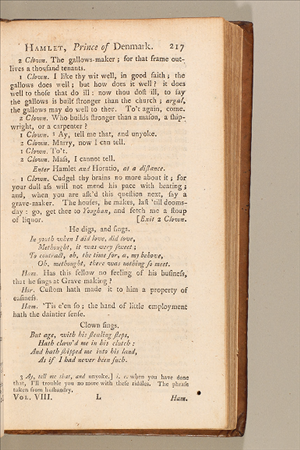 HAMLET, Prince of Denmark. 217
2 Clown. The gallows-maker; for that frame out-
lives a thousand tenants.
1 Clown. I like thy wit well, in good faith; the
gallows does well; but how does it well? it does
well to those that do ill: now thou dost ill, to say
the gallows is built stronger than the church; argal,
the gallows may do well to thee. To't again, come.
2 Clown. Who builds stronger than a mason, a ship-
wright, or a carpenter?
1 Clown. ³ Ay, tell me that, and unyoke.
2 Clown. Marry, now I can tell.
1 Clown. To't.
2 Clown. Mass, I cannot tell.
Enter Hamlet and Horatio, at a distance.
1 Clown. Cudgel thy brains no more about it; for
your dull ass will not mend his pace with beating;
and, when you are ask'd this question next, say a
grave-maker. The houses, he makes, last 'till dooms-
day: go, get thee to Yaughan, and fetch me a soup
of liquor. [Exit 2 Clown.
He digs, and sings.
In youth when I did love, did love,
Methought, it was very sweet;
To contract, oh, the time for, a, my behove,
Oh, methought, there was nothing so meet.
Ham. Has this fellow no feeling of his business,
that he sings at Grave making?
Hor. Custom hath made it to him a property of
easiness.
Ham. 'Tis e'en so; the hand of little employment
hath the daintier sense.
Clown sings.
But age, with his stealing steps,
Hath claw'd me in his clutch:
And hath shipped me into his land,
As if I had never been such.
3 Ay, tell me that, and unyoke.] i. e. when you have done
that, I'll trouble you no more with these riddles. The phrase
taken from husbandry.
VOL. VIII. L Ham.